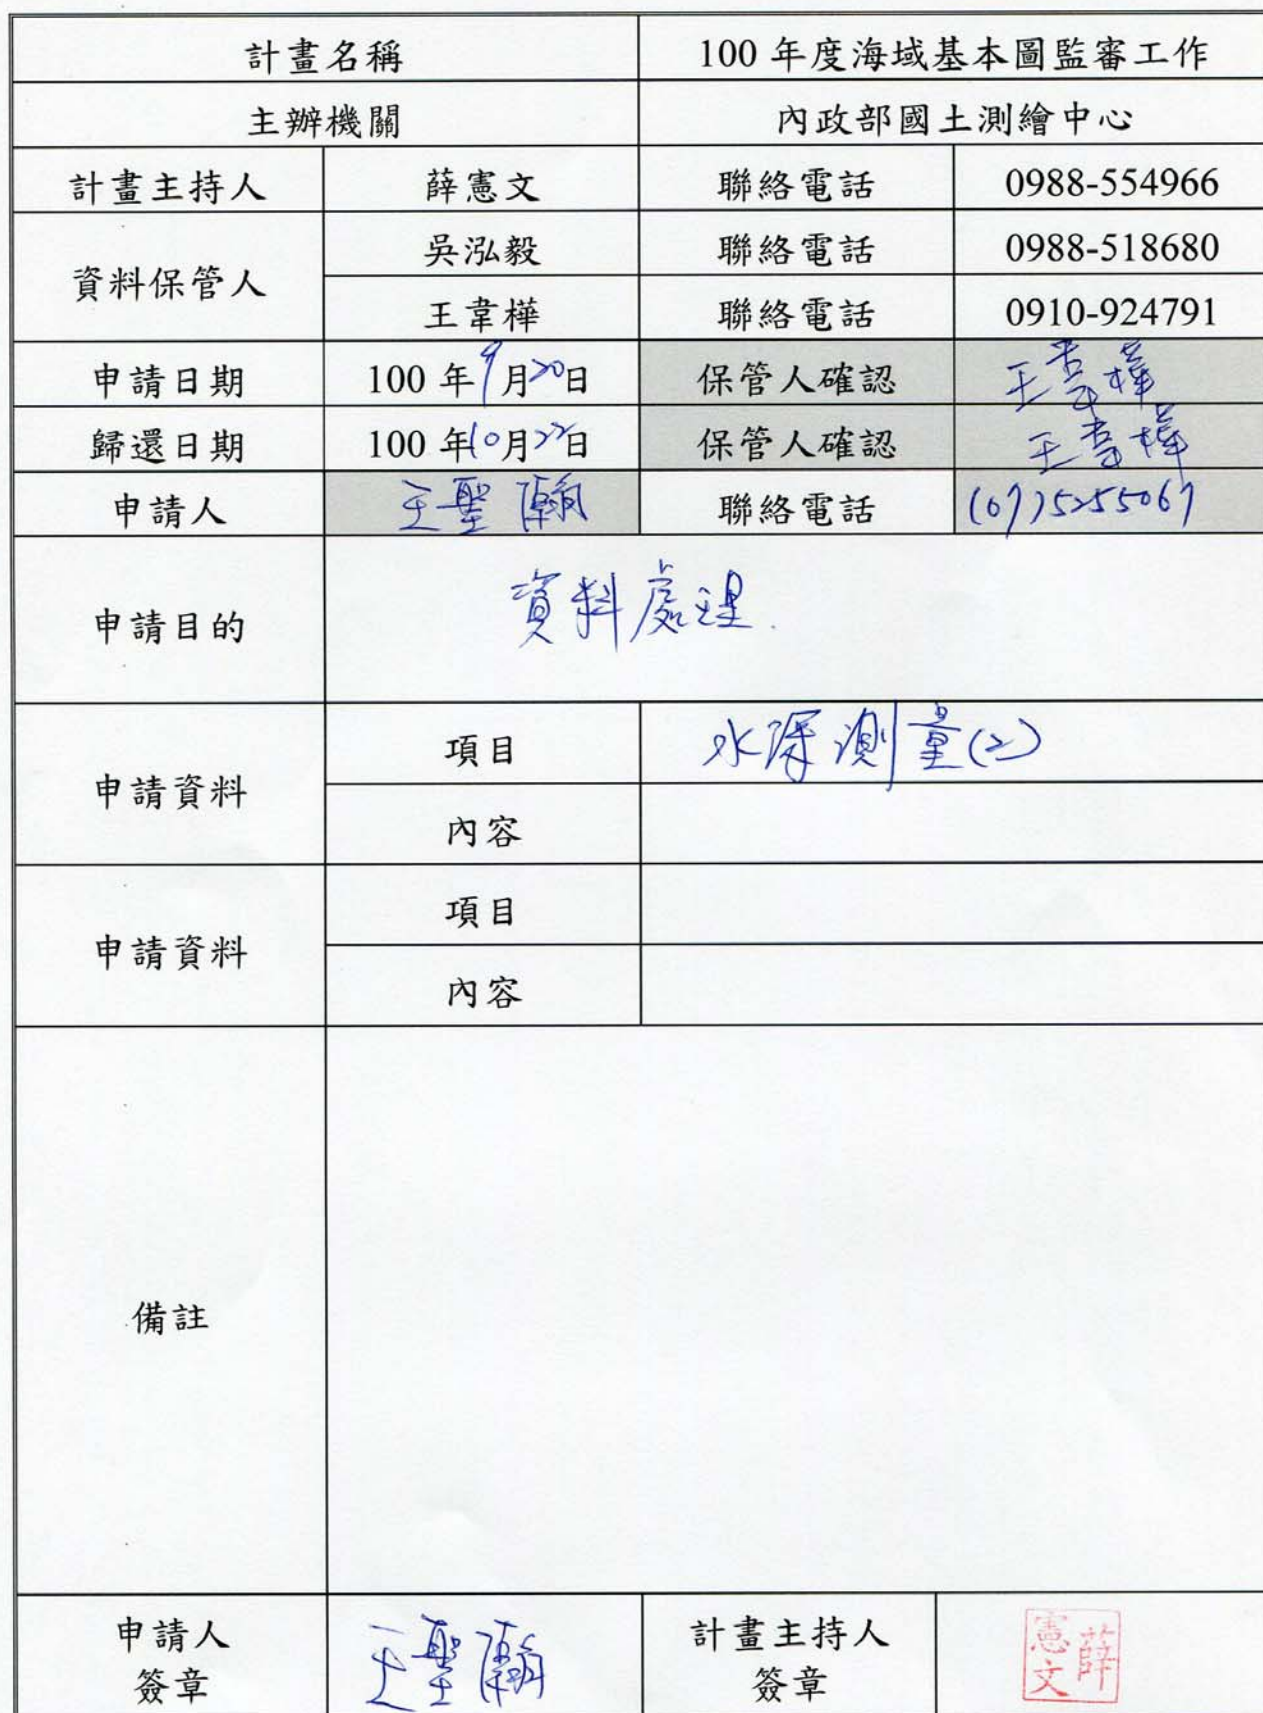 計畫名稱 100 年度海域基本圖監審工作
主辦機關 內政部國土測繪中心
計畫主持人 薛憲文 聯絡電話 0988-554966
資料保管人 吳泓毅 聯絡電話 0988-518680
王韋樺 聯絡電話 0910-924791
申請日期 100 年9月20日 保管人確認 王韋樺
歸還日期 100 年10月22日 保管人確認 王韋樺
申請人 王聖瀚 聯絡電話 (07)5255067
申請目的 資料處理
申請資料 項目 水深測量(2)
內容
申請資料 項目
內容
備註
申請人 王聖瀚 計畫主持人 薛憲文
簽章 簽章